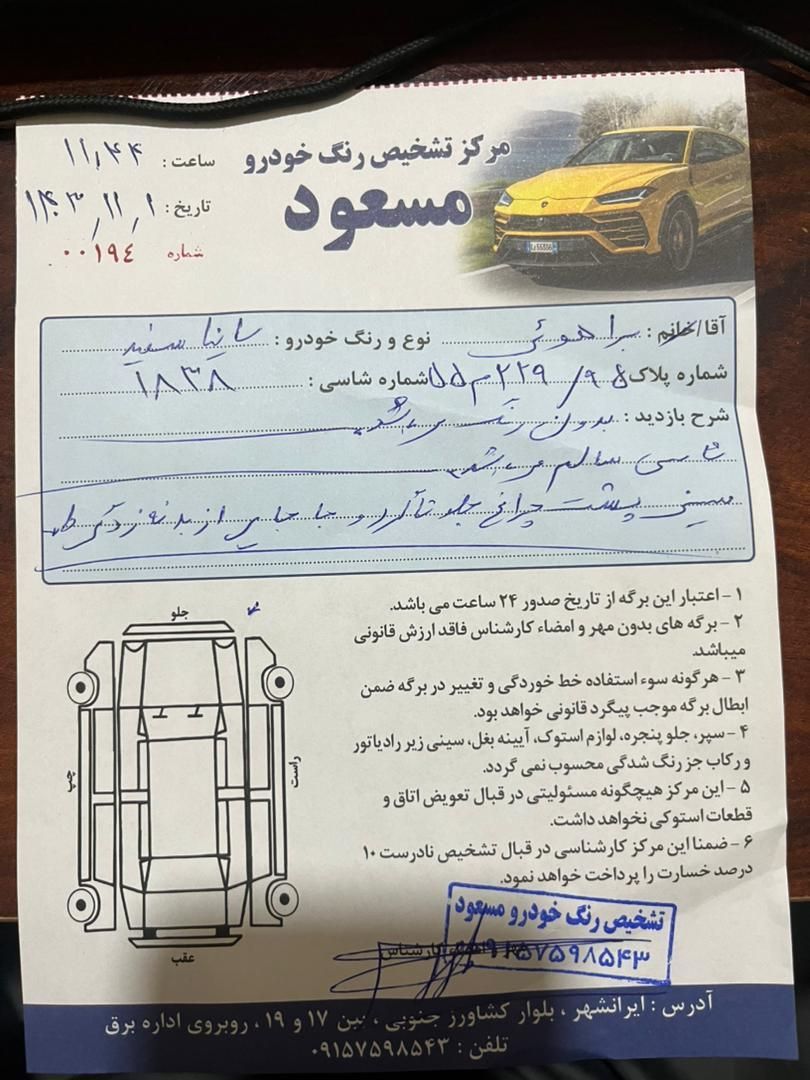 مرکز تشخیص رنگ خودرو
مسعود
ساعت : ۱۱,۴۴
تاریخ : ۱۴۰۳,۱۱,۱
شماره ۰۰۱۹۴
آقا/خانم : براهوئی نوع و رنگ خودرو : ساینا سفید
شماره پلاک ۹۵/ ۲۲۹م۵۵ شماره شاسی : ۱۸۳۸
شرح بازدید : بدون رنگ می باشد
شاسی سالم می باشد
سینی پشت چراغ جلو و جا جای از بدنه زدگی
۱ – اعتبار این برگه از تاریخ صدور ۲۴ ساعت می باشد.
۲ – برگه های بدون مهر و امضاء کارشناس فاقد ارزش قانونی
میباشد.
۳ – هرگونه سوء استفاده خط خوردگی و تغییر در برگه ضمن
ابطال برگه موجب پیگرد قانونی خواهد بود.
۴ – سپر، جلو پنجره، لوازم استوک، آیینه بغل، سینی زیر رادیاتور
و رکاب جز رنگ شدگی محسوب نمی گردد.
۵ – این مرکز هیچگونه مسئولیتی در قبال تعویض اتاق و
قطعات استوکی نخواهد داشت.
۶ – ضمنا این مرکز کارشناسی در قبال تشخیص نادرست ۱۰
درصد خسارت را پرداخت خواهد نمود.
جلو
چپ
راست
عقب
تشخیص رنگ خودرو مسعود
۰۹۱۵۷۵۹۸۵۴۳
کارشناس
آدرس : ایرانشهر ، بلوار کشاورز جنوبی ، بین ۱۷ و ۱۹ ، روبروی اداره برق
تلفن : ۰۹۱۵۷۵۹۸۵۴۳